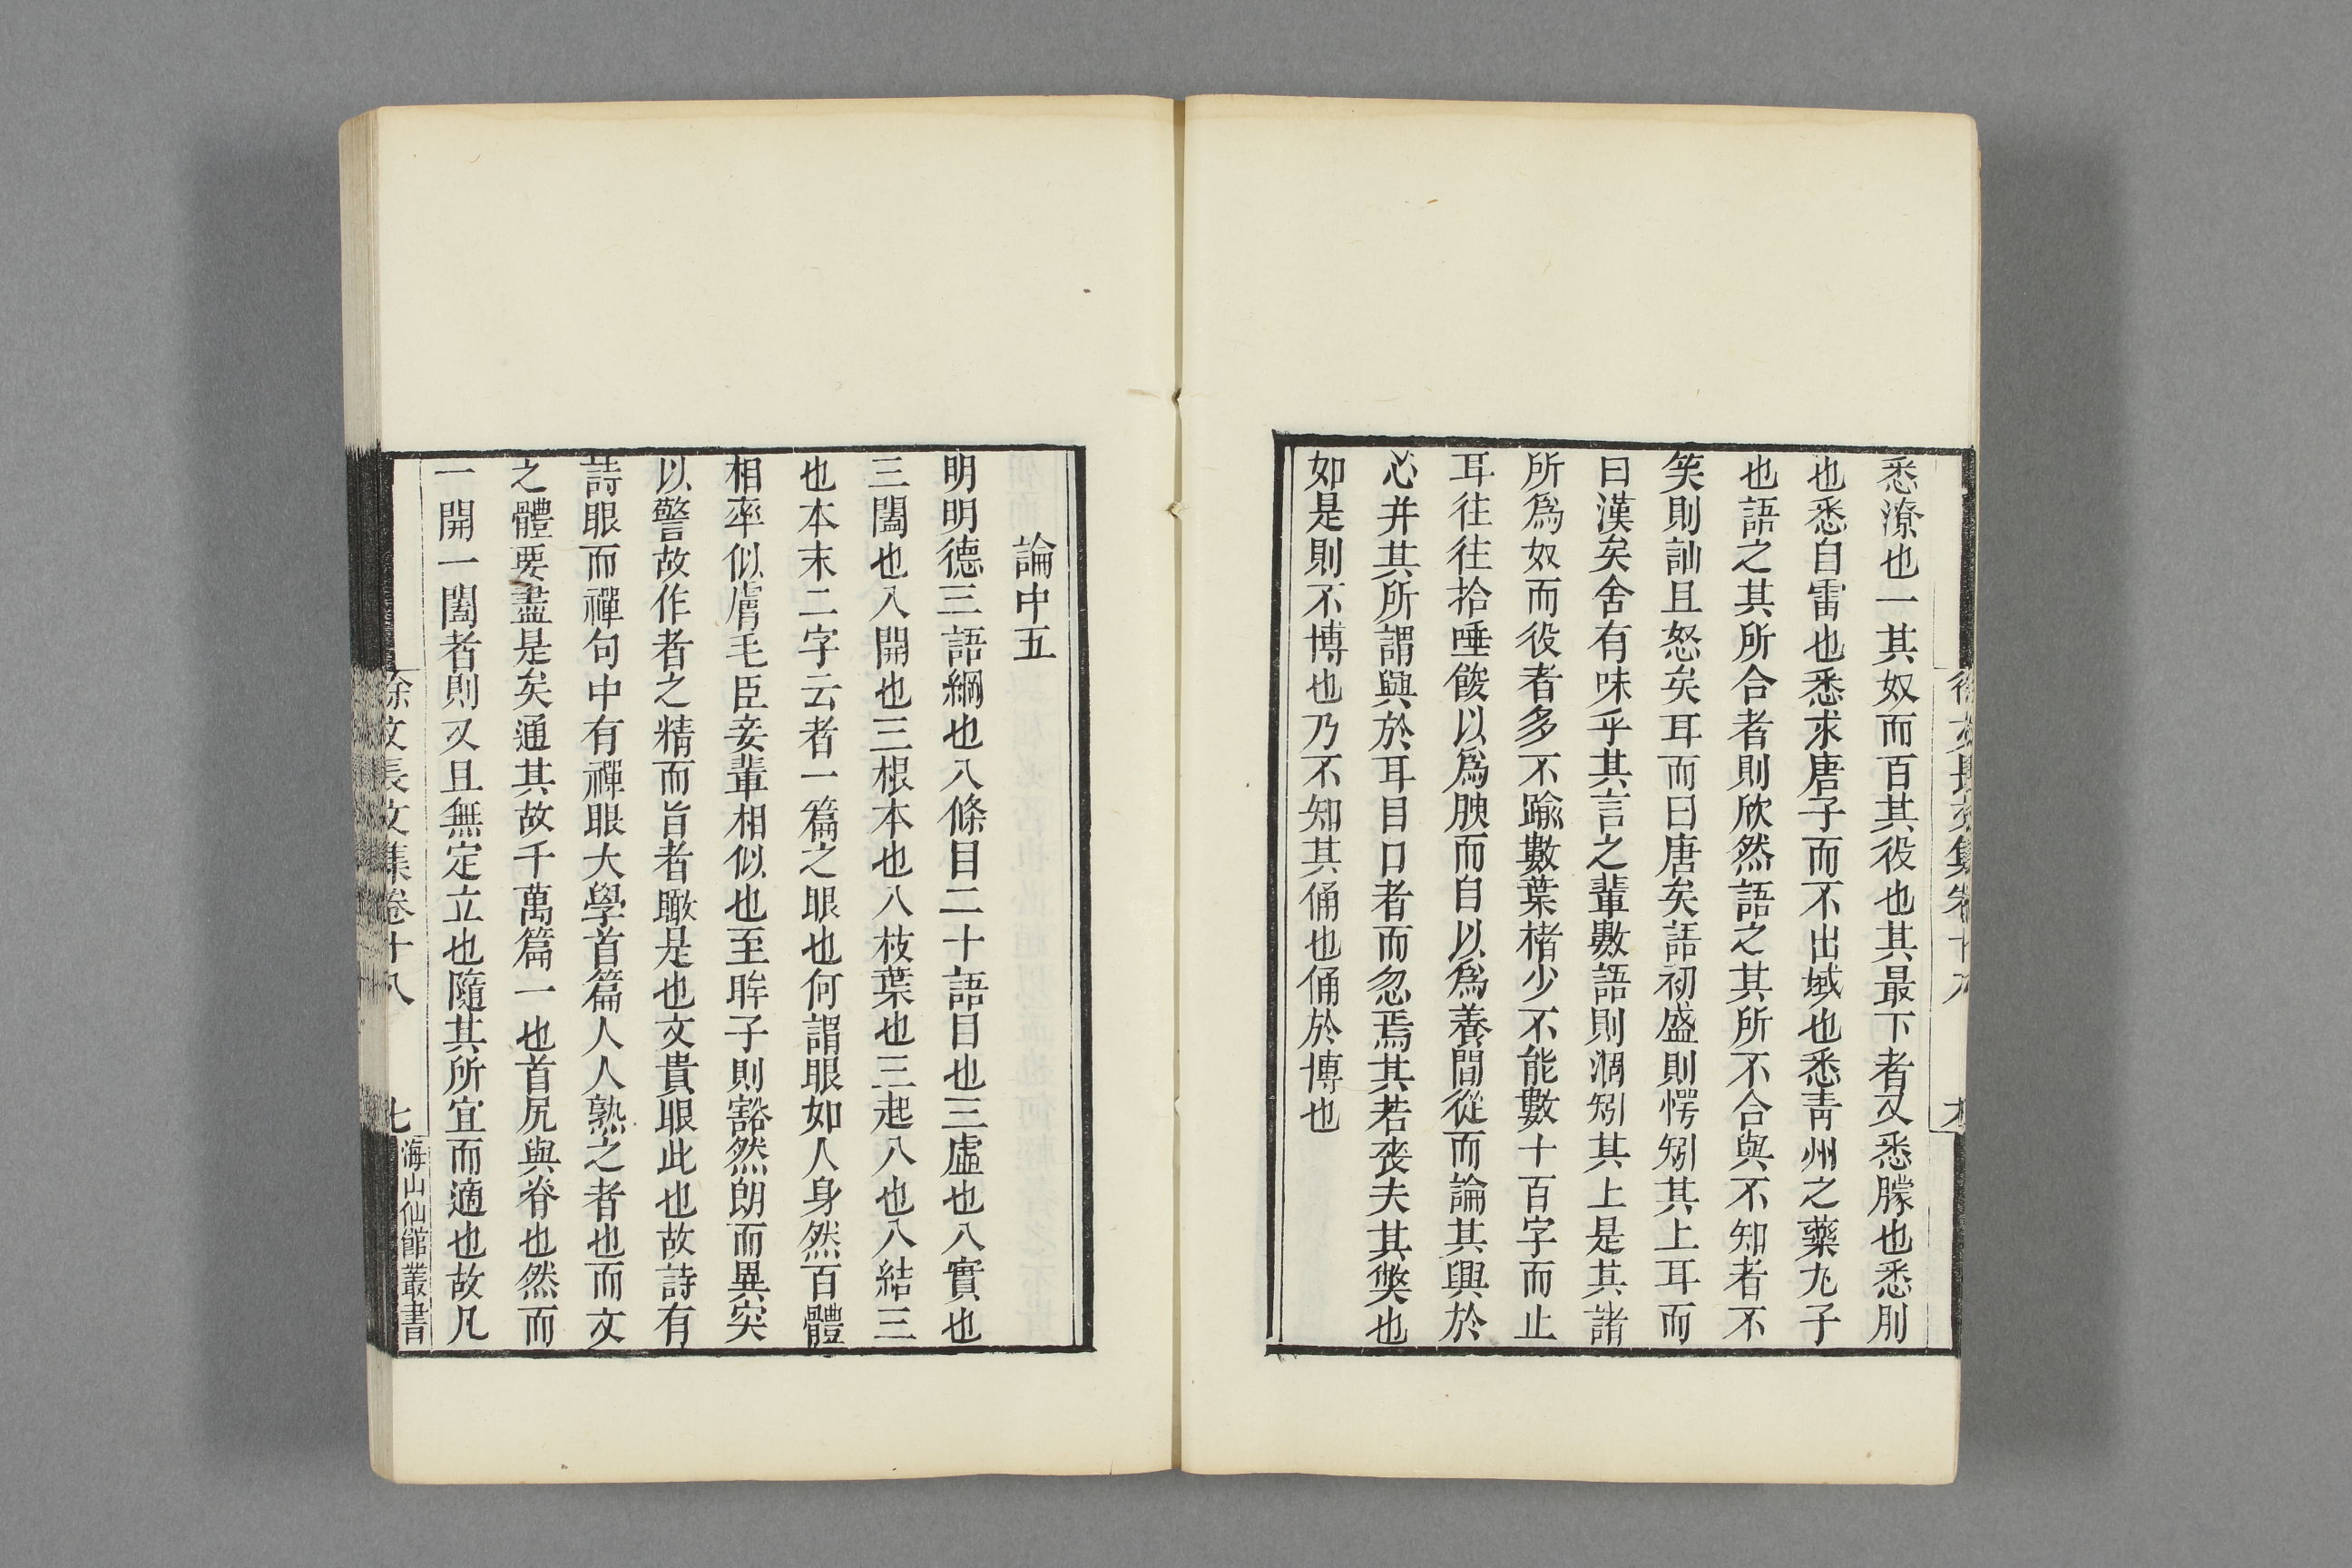 悉潦也一其奴而百其役也其最下者又悉朦也悉刖
也悉自雷也悉求唐子而不出域也悉靑州之藥九子
也語之其所合者則欣然語之其所不合與不知者不
笑則訕且怒矣耳而曰唐矣語初盛則愕矧其上耳而
曰漢矣舍有味乎其言之輩數語則涸矧其上是其諸
所爲奴而役者多不踰數葉楮少不能數十百字而止
耳往往拾唾餕以爲腴而自以爲養間從而論其與於
心并其所謂與於耳目口者而忽焉其若喪夫其獘也
如是則不博也乃不知其俑也俑於博也
論中五
明明德三語綱也八條目二十語目也三虛也八實也
三闔也八開也三根本也八枝葉也三起八也八結三
也本末二字云者一篇之眼也何謂眼如人身然百體
相率似膚毛臣妾輩相似也至眸子則豁然朗而異突
以警故作者之精而旨者瞰是也文貴眼此也故詩有
詩眼而禪句中有禪眼大學首篇人人熟之者也而文
之體要盡是矣通其故千萬篇一也首尻與脊也然而
一開一闔者則又且無定立也隨其所宜而適也故凡
徐文長文集卷十八
七
海山仙館叢書